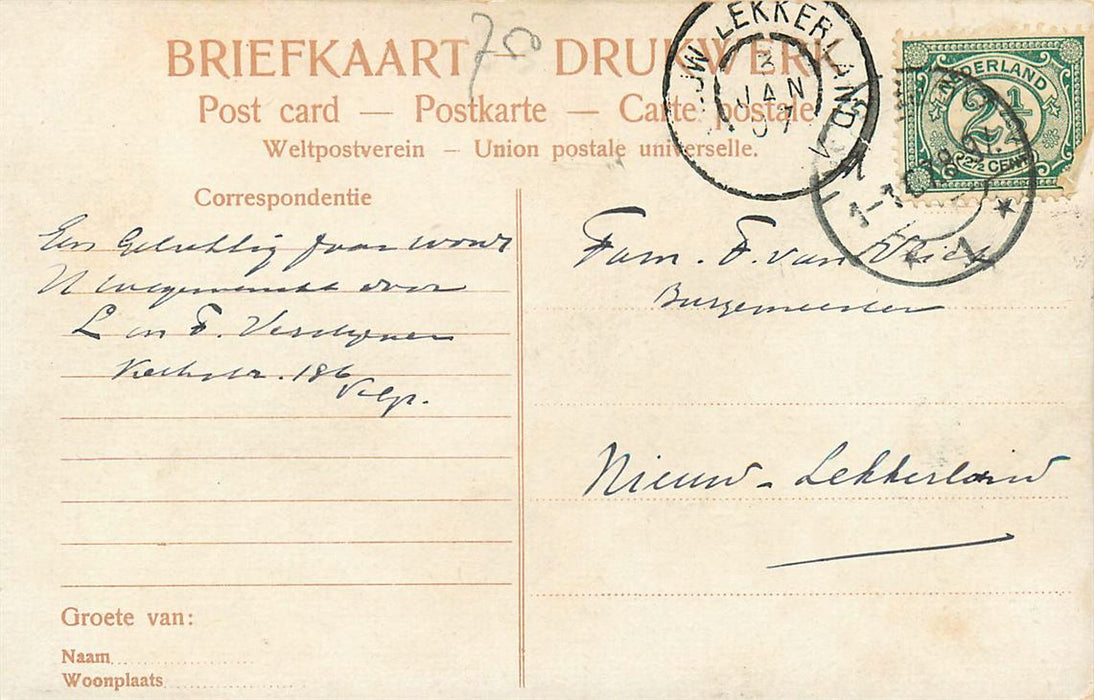 BRIEFKAART — DRUKWERK
700
Post card — Postkarte — Carte postale
Weltpostverein – Union postale universelle.
LEKKERLAND
3
JAN
07
NEDERLAND
2½
2½ CENT
1
Correspondentie
Een Gelukkig jaar wordt
U toegewenscht door
L en F.
186
Velp.
Fam. F. van
Burgemeester
Nieuw-Lekkerland
Groete van:
Naam
Woonplaats